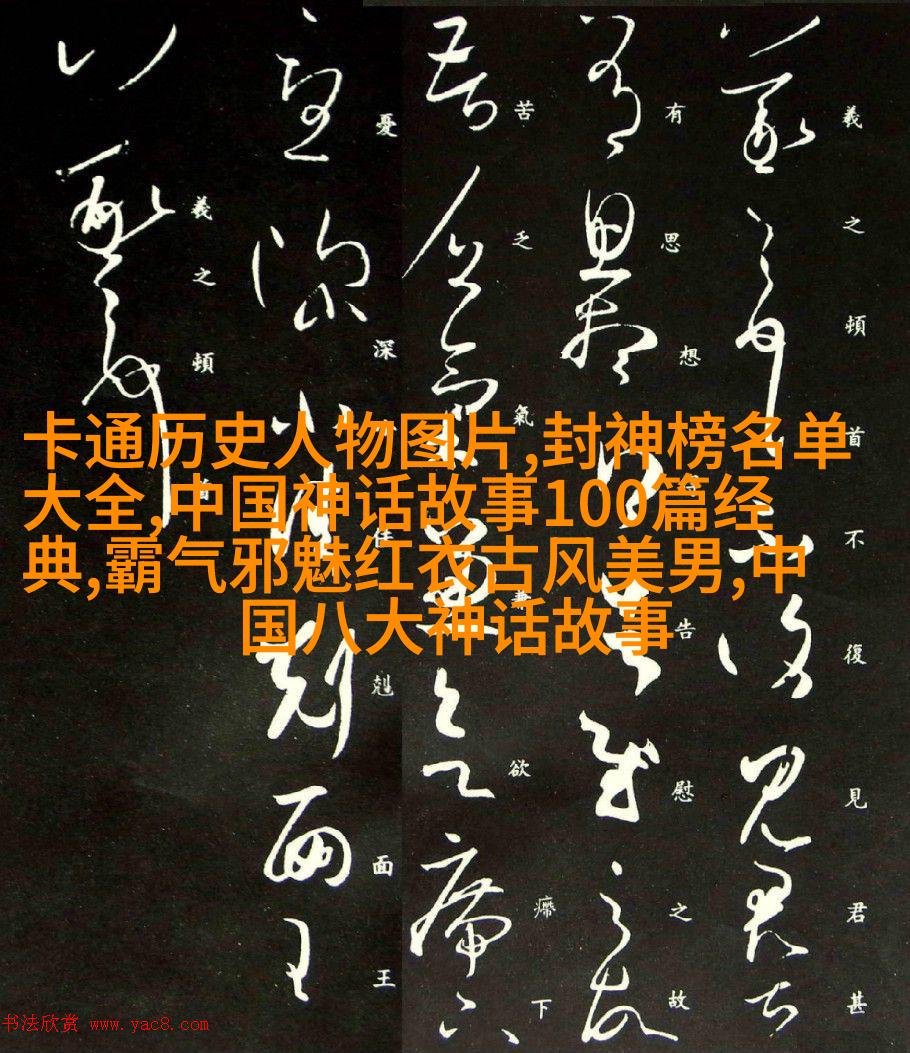 卡通历史人物图片,封神榜名单
大全,中国神话故事100篇经
典,霸气邪魅红衣古风美男,中
国八大神话故事
羲之頓首不復見君甚
有思想告慰之故
苦乏氣兼欲㿃下
憂深佳剋面王
羲之頓首
书法欣赏 www.yac8.com